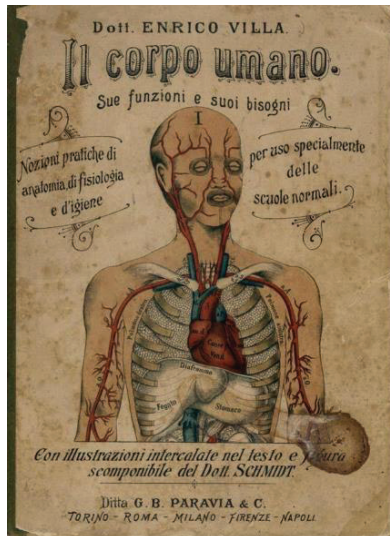 Dott. ENRICO VILLA.
Il corpo umano.
Sue funzioni e suoi bisogni
I
Nozioni pratiche di
anatomia, di fisiologia
e d'igiene
per uso specialmente
delle
scuole normali.
Cuore
Diaframma
Fegato
Stomaco
Con illustrazioni intercalate nel testo e figura
scomponibile del Dott. SCHMIDT.
Ditta G. B. PARAVIA & C.
TORINO - ROMA - MILANO - FIRENZE - NAPOLI